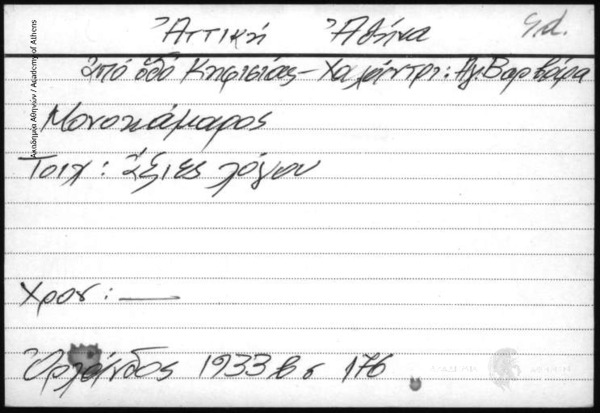 Ἀττικὴ Ἀθήνα
ἀπό ὁδό Κηφισίας - Χαλάντρι: Ἁγ. Βαρβάρα
Μονοκάμαρος
Τοιχ: ἄξιες λόγου
Χρον: —
Ὀρλάνδος 1933 β σ 176
Ακαδημία Αθηνών / Academy of Athens